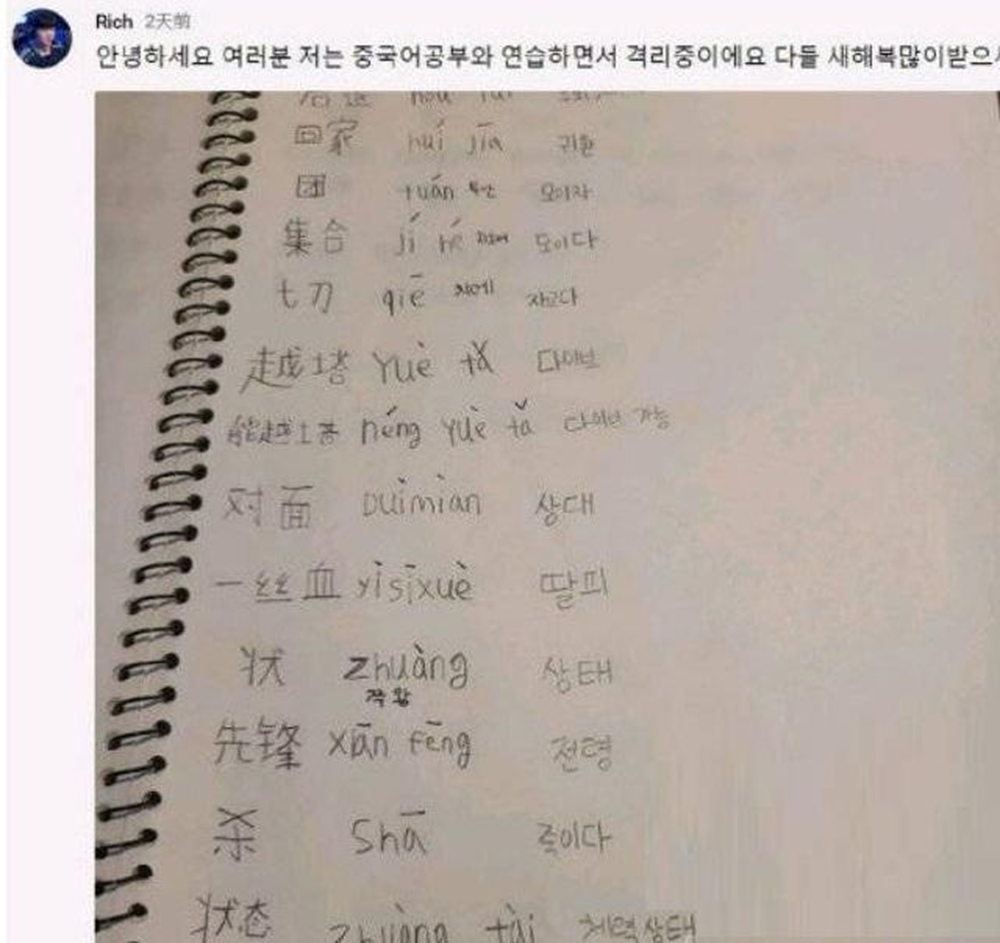 Rich 2天前
안녕하세요 여러분 저는 중국어공부와 연습하면서 격리중이에요 다들 새해복많이받으
回家 huí jiā 귀환
团 tuán 모이자
集合 jí hé 모이다
切 qiē 자르다
越塔 Yuè tǎ 다이브
能越塔 néng yuè tǎ 다이브 가능
对面 Duìmiàn 상대
一丝血 yìsīxuè 딸피
状 zhuàng 상태
쫙왕
先锋 xiān fēng 전령
杀 Shā 죽이다
状态 zhuàng tài 체력상태